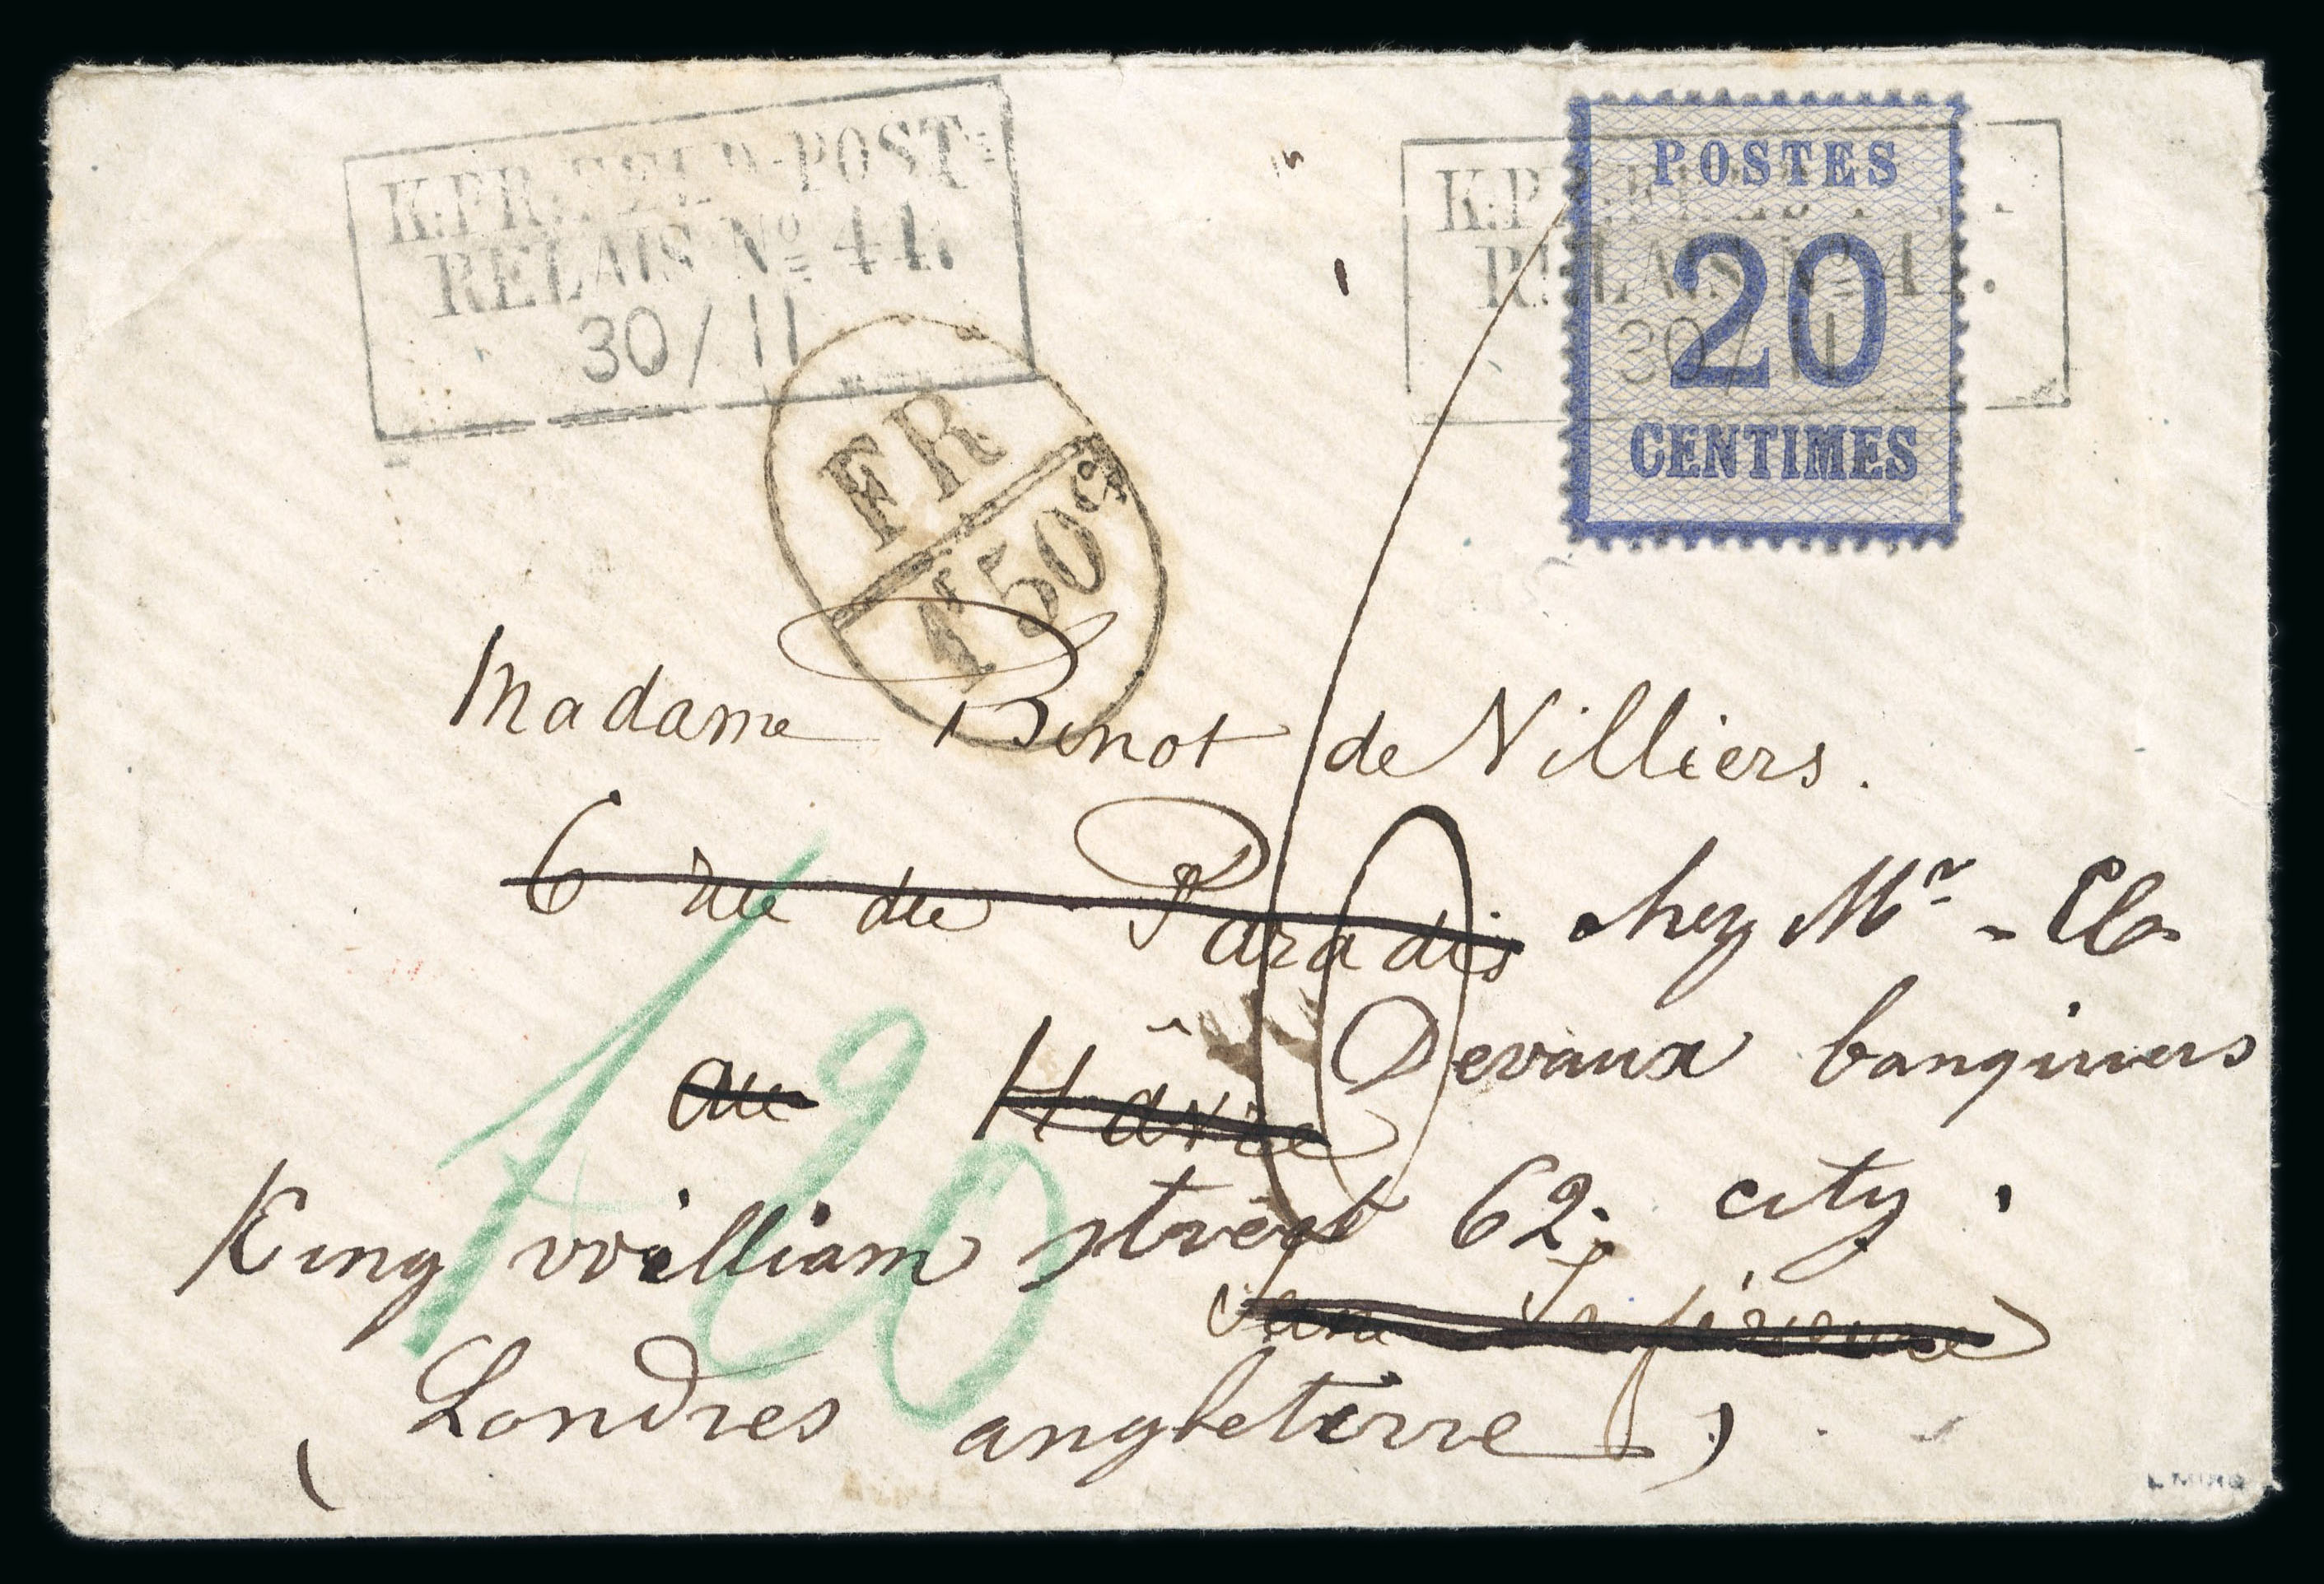 K.PR.FELD-POST-
RELAIS No 44.
30/11
K.P
RELAIS No
30/11
POSTES
20
CENTIMES
FR
1F 50c
10
Madame Binot de Villiers.
6 rue du Paradis chez Mr - Ch.
au Hâvre Devaux banquiers
King william street 62; city.
Seine Inférieure
(Londres angleterre)
120